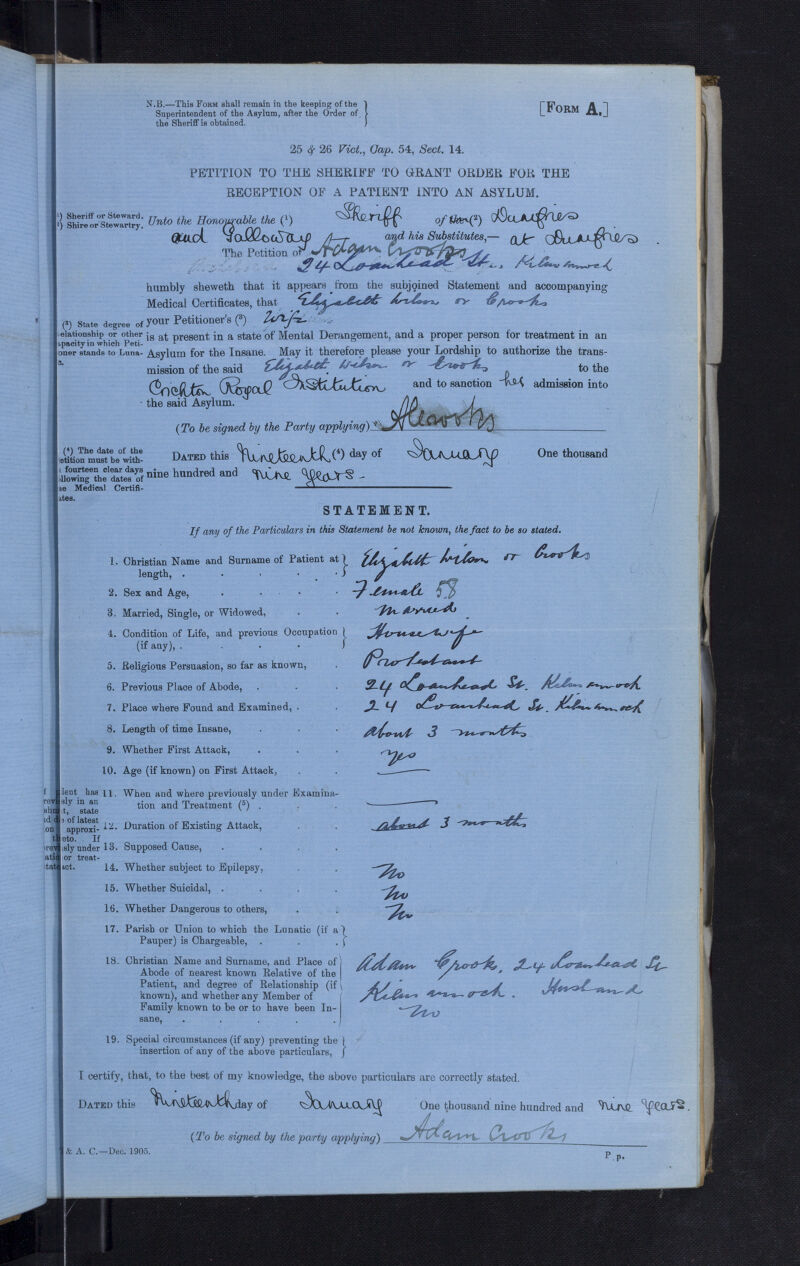 N.B.—This Form shall remain in the keeping of the
Superintendent of the Asylum, after the Order of
the Sheriff is obtained.
[Form A.]
25 & 26 Vict., Cap. 54, Sect. 14.
PETITION TO THE SHERIFF TO GRANT ORDER FOR THE
RECEPTION OF A PATIENT INTO AN ASYLUM.
(¹) Sheriff or Steward.
(²) Shire or Stewartry.
Unto the Honourable the (¹) Sheriff of the (²) Dumfries
and Galloway and his Substitutes,— at Dumfries.
The Petition of Adam Crooks
24 Loanhead St., Kilmarnock
humbly sheweth that it appears from the subjoined Statement and accompanying
Medical Certificates, that Elizabeth Wilson or Crooks
(³) State degree of
relationship or other
capacity in which Peti-
oner stands to Luna-
your Petitioner's (³) Wife
is at present in a state of Mental Derangement, and a proper person for treatment in an
Asylum for the Insane. May it therefore please your Lordship to authorize the trans-
mission of the said Elizabeth Wilson or Crooks to the
Crichton Royal Institution and to sanction her admission into
the said Asylum.
(To be signed by the Party applying) ACrooks
(⁴) The date of the
petition must be with-
fourteen clear days
llowing the dates of
e Medical Certifi-
ates.
Dated this Nineteenth (⁴) day of January One thousand
nine hundred and nine Years.
STATEMENT.
If any of the Particulars in this Statement be not known, the fact to be so stated.
1. Christian Name and Surname of Patient at
length, . Elizabeth Wilson or Crooks
2. Sex and Age, Female 58
3. Married, Single, or Widowed, Married
4. Condition of Life, and previous Occupation
(if any), . Housewife
5. Religious Persuasion, so far as known, Protestant
6. Previous Place of Abode, . 24 Loanhead St. Kilmarnock
7. Place where Found and Examined, . 24 Loanhead St. Kilmarnock
8. Length of time Insane, about 3 months
9. Whether First Attack, yes
10. Age (if known) on First Attack, —
ient has
sly in an
t, state
of latest
approxi-
eto. If
sly under
or treat-
11. When and where previously under Examina-
tion and Treatment (⁵) . —
12. Duration of Existing Attack, about 3 months
13. Supposed Cause,
14. Whether subject to Epilepsy, No
15. Whether Suicidal, . No
16. Whether Dangerous to others, No
17. Parish or Union to which the Lunatic (if a
Pauper) is Chargeable, .
18. Christian Name and Surname, and Place of
Abode of nearest known Relative of the
Patient, and degree of Relationship (if
known), and whether any Member of
Family known to be or to have been In-
sane, .
Adam Crooks, 24 Loanhead St
Kilmarnock. Husband
No
19. Special circumstances (if any) preventing the
insertion of any of the above particulars,
I certify, that, to the best of my knowledge, the above particulars are correctly stated.
Dated this Nineteenth day of January One thousand nine hundred and nine Years.
(To be signed by the party applying) Adam Crooks
& A. C.—Dec. 1905.
P p.